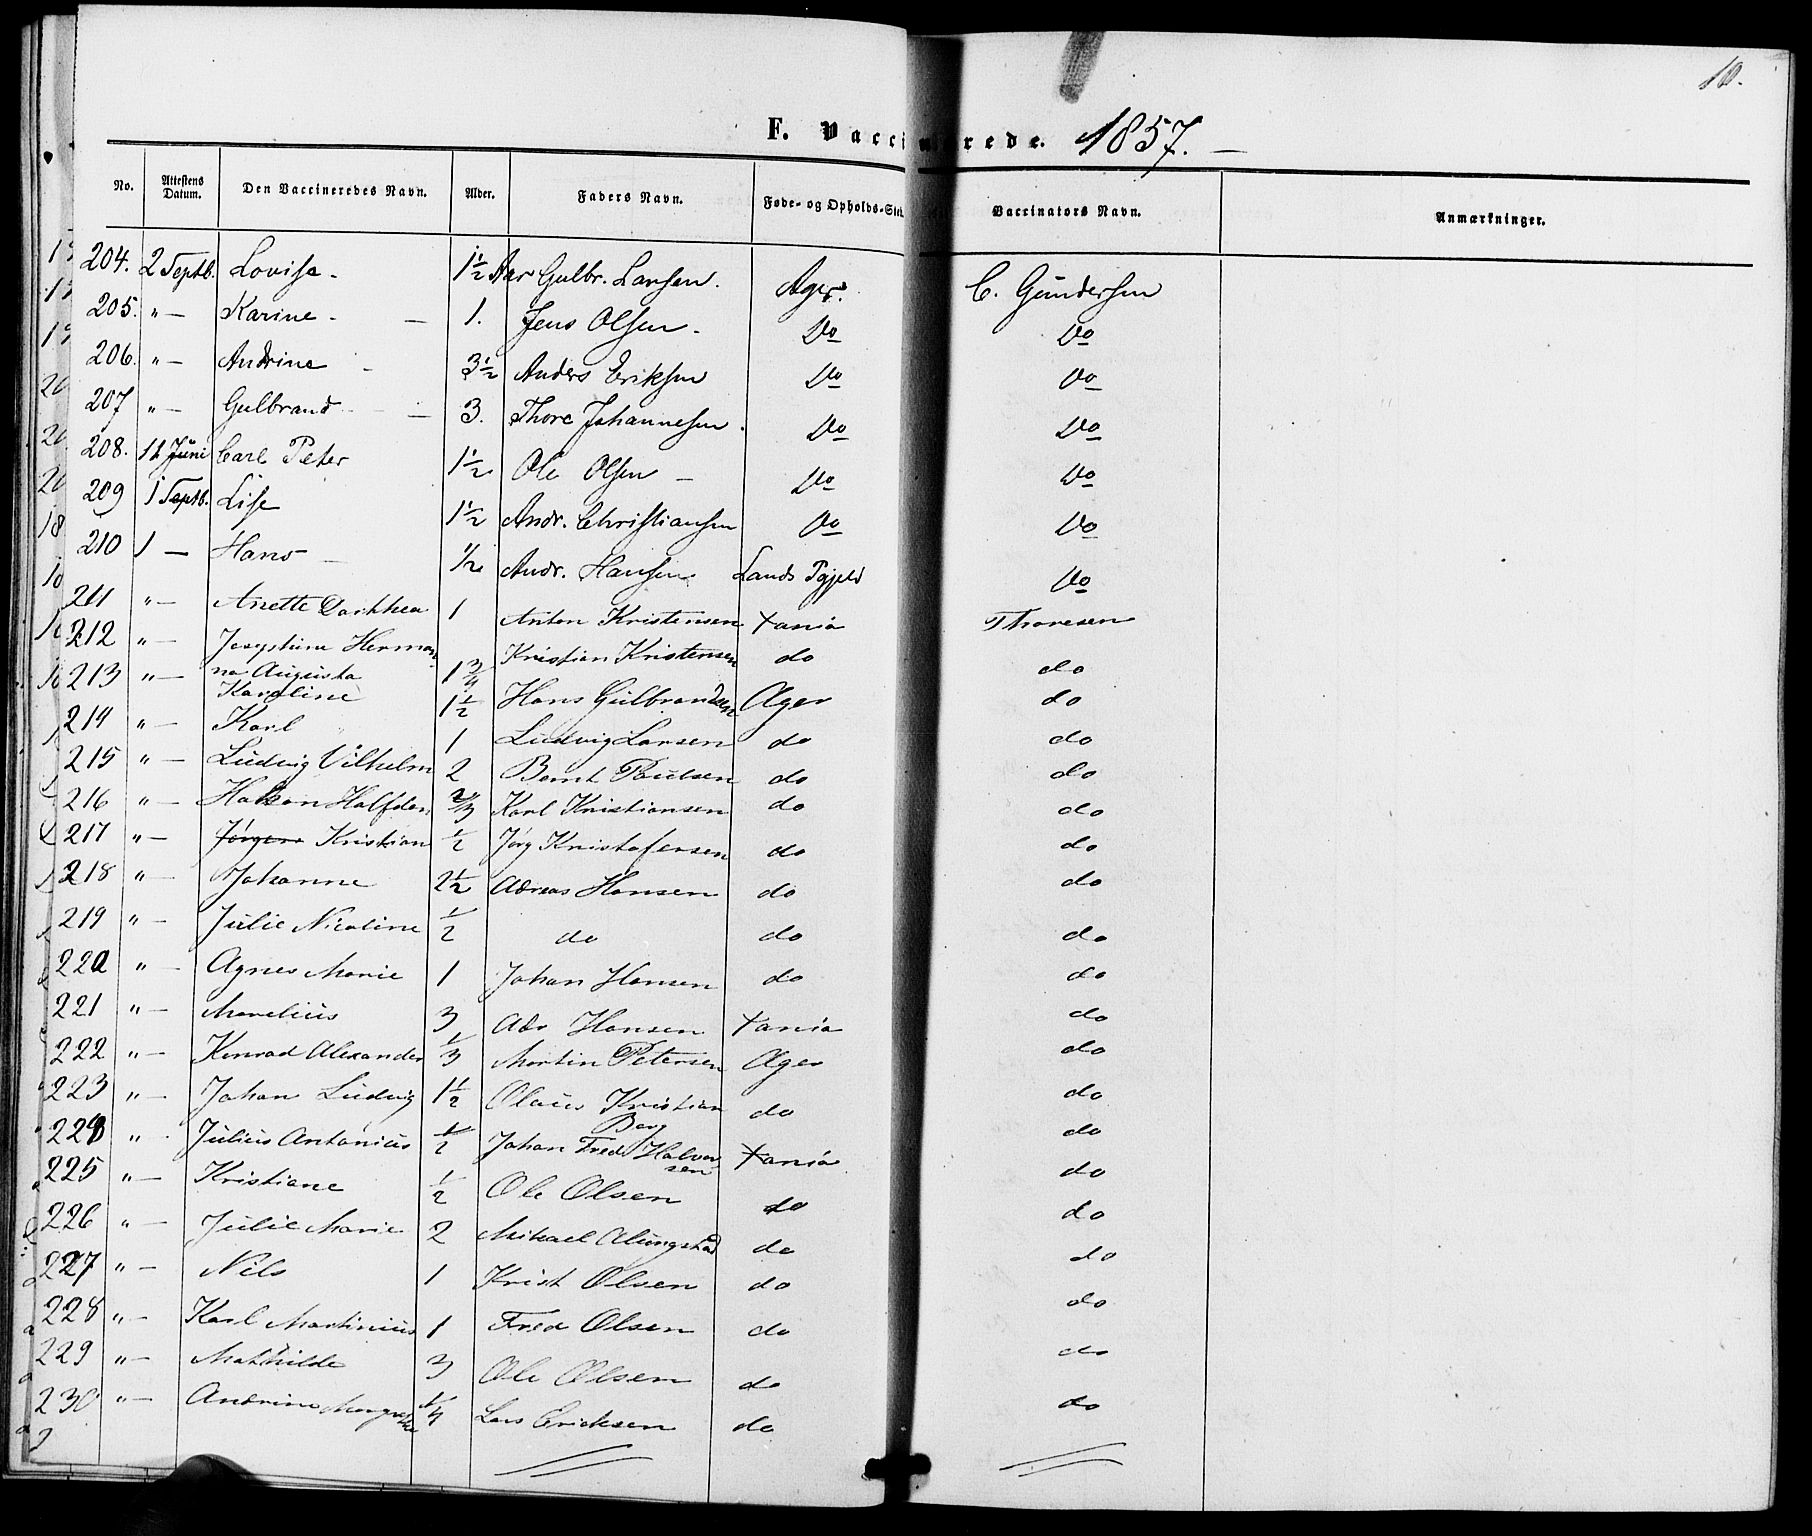 10.
F. Vaccinerede. 1857. —
No. Attestens Datum. Den Vaccineredes Navn. Alder. Faders Navn. Føde- og Opholds-Sted. Vaccinators Navn. Anmærkninger.
204. 2 Septb. Lovise - 1½ Aar Gulbr. Larsen. Ager. C. Gundersen
205. " — Karine - — 1. Jens Olsen - Do Do
206. " — Andrine - 3½ Anders Eriksen Do Do
207 " — Gulbrand - — 3. Thore Johannesen. Do Do
208. 11 Juni Carl Peter 1½ Ole Olsen — Do Do
209 1 Septb. Lise 1½ Andr. Christiansen Do Do
210 1 — Hans — ½ Andr. Hansen Lands Pgjeld Do
211 " — Anette Dorthea 1 Anton Kristensen Xania Thoresen
212 " — Josephine Herman-
na Augusta 1¾ Kristian Kristensen do do
213 " — Karoline 1½ Hans Gulbrandsen Ager do
214 " — Karl 1 Ludvig Larsen do do
215 " — Ludvig Vilhelm 2 Bernt Paulsen do do
216 " — Hakon Halfdan ⅔ Karl Kristiansen do do
217 " — Jörgen Kristian ½ Jörg Kristofersen do do
218 " — Johanne 2½ Adreas Hansen do do
219 " — Julie Nicoline ½ do do do
220 " — Agnes Marie 1 Johan Hansen do do
221 " — Marelius 3 Adr Hansen Xania do
222 " — Konrad Alexander ⅓ Martin Petersen Ager do
223 " — Johan Ludvig 1½ Olaus Kristian
Berg do do
224 " . Julius Antonius ½ Johan Fred Halvor
sen Xania do
225 " — Kristiane ½ Ole Olsen do do
226 " — Julie Marie 2 Mikael Alungstad do do
227 " — Nils 1 Krist Olsen do do
228 " — Karl Martinius 1 Fred Olsen do do
229 " — Mathilde 3 Ole Olsen do do
230 " — Andrine Margrethe ¼ Lars Ericksen do do